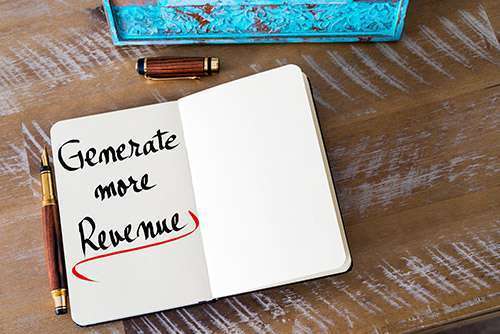 Generate
more
Revenue